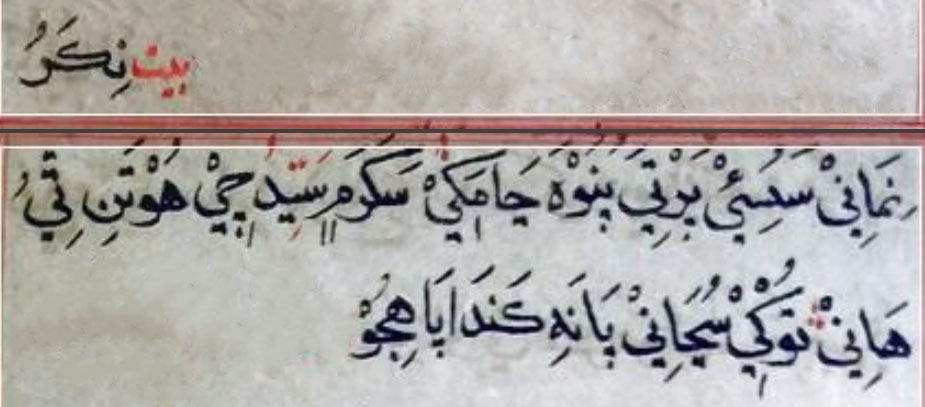 بيت نِکَرُ
نِمَانِيْ سَسِئِيْ بَرْتِيْ بِنوْهَ جَامَکِيْ سَکَرَمِ سَيّد جِيْ هُوْتَنِ تِيْ
هَانِيْ تَوکِيْ سُڃَانِيْ پَانَهِ کَندَا پَاهِجوْ